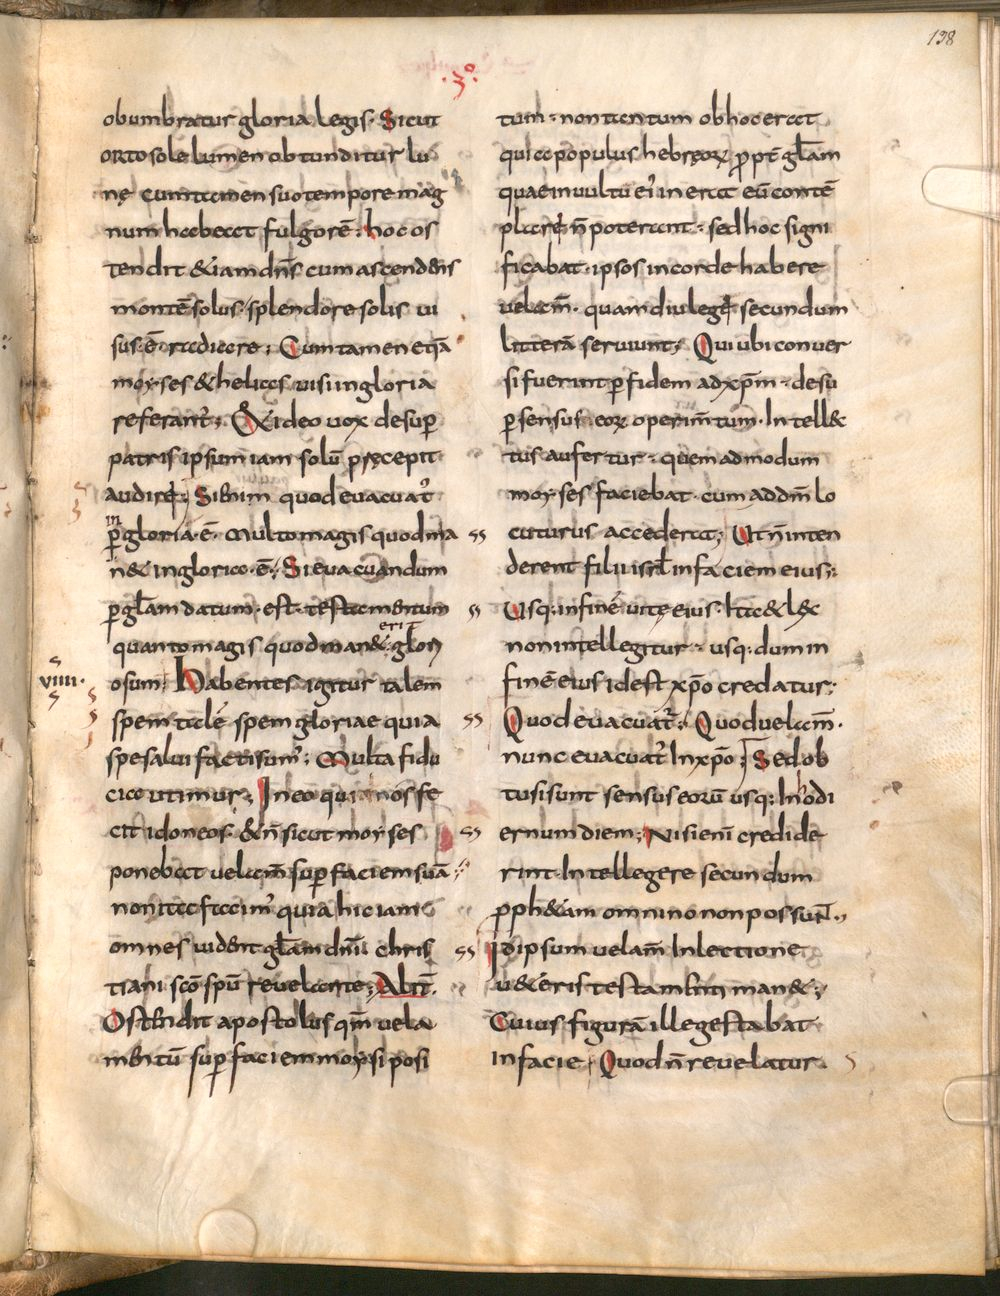 138
·3º·
obumbratur gloria legis· Sicut
orto sole lumen obtunditur lu
nę cum tamen suo tempore mag
num habeat fulgorē· hoc os
tendit &iam dn̄s cum ascendens
montē solus· splendore solis ui
sus· ē· radiare; Cum tamen etiā
moyses & helias uisi in gloria
referant̉; Et ideo uox desup̱
patris ipsum iam solū p̱ręcepit
audire; Si enim quod euacuat̉
in
p̱ gloriā· ē· Multo magis quod ma
n& in gloria· ē· Si euacuandum
p̱ gl̄am datum· est· testamentum
erit
quanto magis quod man& glori
VIIII·
osum; Habentes igitur talem
spem talē spem gloriae quia
spe salui facti sum̉; Multa fidu
cia utimur; In eo quia nos fe
cit idoneos· & n̄ sicut moyses
poneb&at uelam̄ sup̱ faciem suā
non ita facim̉ quia hic iam
omnes uident gl̄am dn̄i chris
tiani sc̄o sp̄u reuelante; Alit̄·
Ostendit apostolus qm̄ uela
mentū sup̱ faciem moysi posi
tum· non tantum ob hoc erat
quia populus hebręorꝝ p̱pt̄ gl̄am
quae in uultū eỉ inerat eū contē
plare n̄ poterant· sed hoc signi
ficabat· ipsos in corde habere
uelam̄· quamdiu legē secundum
litterā seruiunt; Qui ubi conuer
si fuerint p̱ fidem ad xp̄m· desu
p̱ sensus eorꝝ operim̄tum· Intell&
tus aufertur· quemadmodum
moyses faciebat· cum ad dm̄ lo
cuturus accederat; Ut n̄ inten
derent filii isrl̄ in faciem eius;
Usq: in finē uitę eius· haec & lex
non intellegitur· usq: dum in
finē eius id est xp̄o credatur;
Quod euacuat̉; Quod uelam̄·
nunc euacuat̉ In xp̄o; Sed ob
tusi sunt sensus eorū usq: In hodi
ernum diem; Nisi enī credide
rint· Intellegere secundum
p̱ph&iam omnino non possunt̄·,
Id ipsum uelam̄ In lectione
u&eris testamenti man&;
Cuius figurā ille gestabat
in facie· Quod n̄ reuelatur·